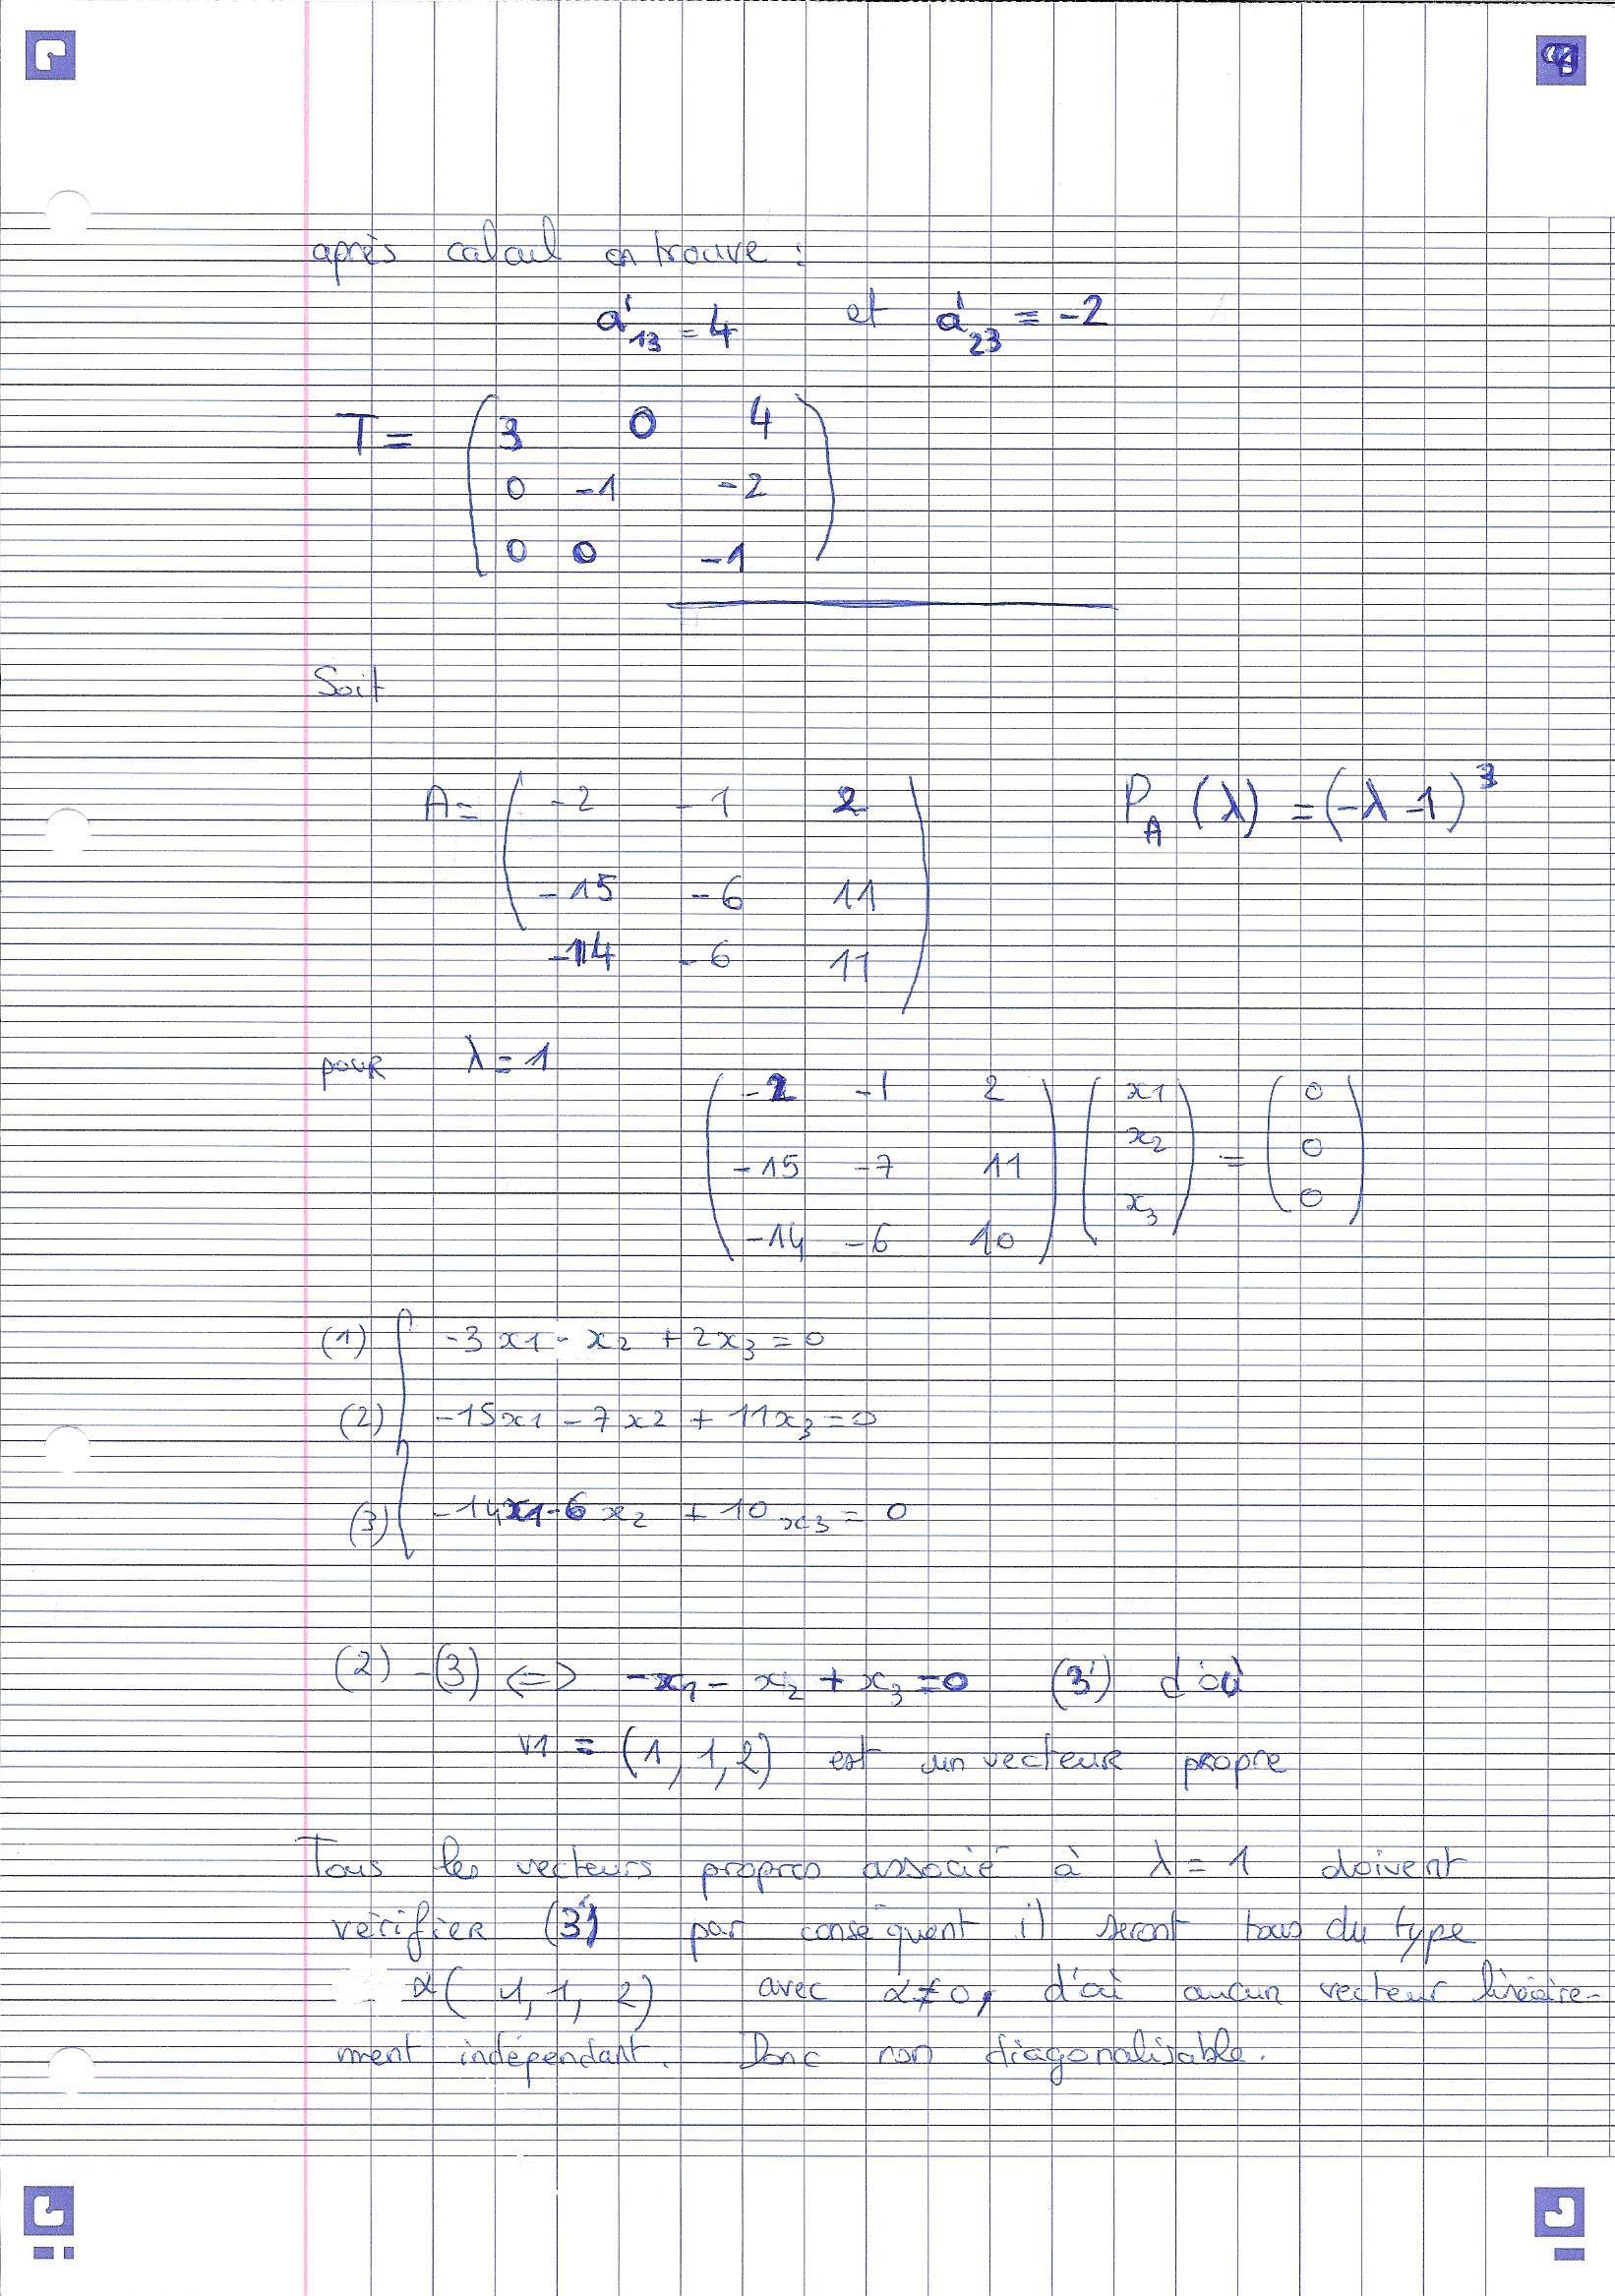 après calcul on trouve :
a'13 = 4 et a'23 = -2
T = ( 3 0 4
0 -1 -2
0 0 -1 )
Soit
A = ( -2 -1 2
-15 -6 11
-14 -6 11 )
P_A (λ) = (-λ -1)^3
pour λ = 1
( -2 -1 2 ) ( x1 ) = ( 0 )
( -15 -7 11 ) ( x2 ) ( 0 )
( -14 -6 10 ) ( x3 ) ( 0 )
(1) { -3x1 - x2 + 2x3 = 0
(2) -15x1 - 7x2 + 11x3 = 0
(3) -14x1 - 6x2 + 10x3 = 0
(2) - (3) <=> -x1 - x2 + x3 = 0 (3') d'où
v1 = (1, 1, 2) est un vecteur propre
Tous les vecteurs propres associé à λ = 1 doivent
vérifier (3') par conséquent il seront tous du type
α( 1, 1, 2) avec α ≠ 0, d'où aucun vecteur linéaire-
ment indépendant. Donc non diagonalisable.